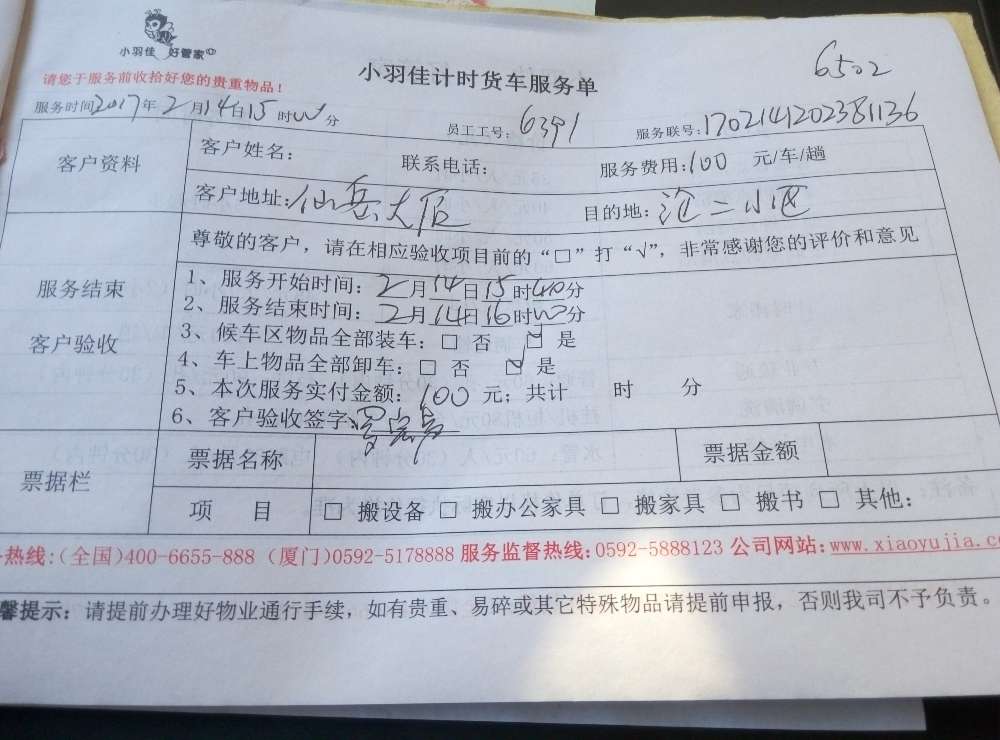 小羽佳 好管家
6502
请您于服务前收拾好您的贵重物品！
小羽佳计时货车服务单
服务时间2017年2月14日15时00分 员工工号：6391 服务联号：1702141202381136
客户资料
客户姓名： 联系电话： 服务费用：100 元/车/趟
客户地址：仙岳大厦 目的地：沧二小区
服务结束
客户验收
尊敬的客户，请在相应验收项目前的“□”打“√”，非常感谢您的评价和意见
1、服务开始时间：2月14日15时40分
2、服务结束时间：2月14日16时00分
3、候车区物品全部装车：□ 否 ☑ 是
4、车上物品全部卸车：□ 否 ☑ 是
5、本次服务实付金额：100 元；共计 时 分
6、客户验收签字：
票据栏
票据名称 票据金额
项 目 □ 搬设备 □ 搬办公家具 □ 搬家具 □ 搬书 □ 其他：
热线：(全国)400-6655-888 (厦门)0592-5178888 服务监督热线：0592-5888123 公司网站：www.xiaoyujia.co
馨提示：请提前办理好物业通行手续，如有贵重、易碎或其它特殊物品请提前申报，否则我司不予负责。